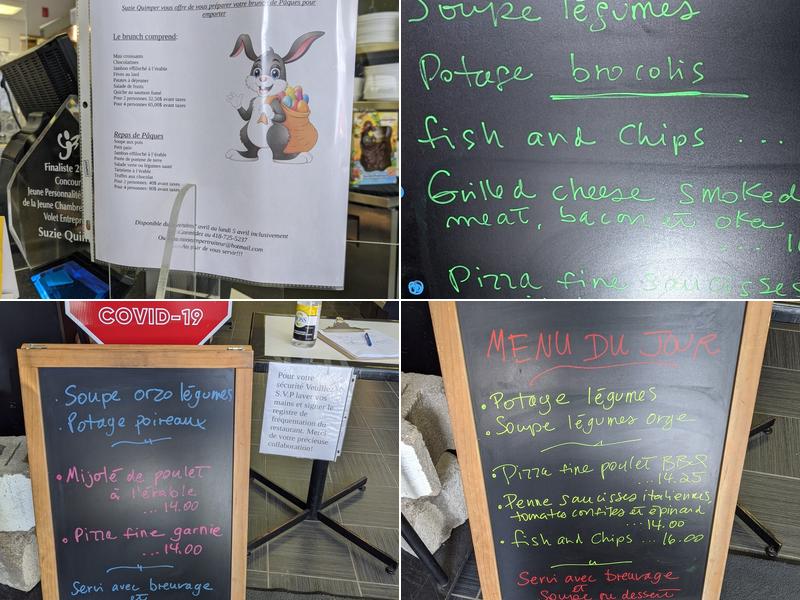 Suzie Quimper vous offre de vous préparer votre brunch de Pâques pour
emporter
Le brunch comprend:
Mini croissants
Chocolatines
Jambon effiloché à l'érable
Fèves au lard
Patates à déjeuner
Salade de fruits
Quiche au saumon fumé
Pour 2 personnes 32,50$ avant taxes
Pour 4 personnes 65,00$ avant taxes
Repas de Pâques
Soupe aux pois
Petit pain
Jambon effiloché à l'érable
Purée de pomme de terre
Salade verte ou légumes sauté
Tartelette à l'érable
Truffes au chocolat
Pour 2 personnes: 40$ avant taxes
Pour 4 personnes: 80$ avant taxes
Disponible du avril au lundi 5 avril inclusivement
Commandez au 418-725-5237
Au plaisir de vous servir!!!
Finaliste
Concour
Jeune Personnalité
de la Jeune Chambre
Volet Entrepr
Suzie Quim
Soupe légumes
Potage brocolis
fish and chips ...
Grilled cheese smoked
meat, bacon et oka
Pizza fine saucisses
COVID-19
Soupe orzo légumes
Potage poireaux
Mijoté de poulet
à l'érable
... 14.00
Pizza fine garnie
... 14.00
Servi avec breuvage
et
Pour votre
sécurité Veuillez
S.V.P laver vos
mains et signer le
registre de
fréquentation du
restaurant. Merci
de votre précieuse
collaboration!
MENU DU JOUR
Potage légumes
Soupe légumes orge
Pizza fine poulet BBQ
... 14.25
Penne saucisses italiennes,
tomates confites et épinard
... 14.00
fish and chips ... 16.00
Servi avec breuvage
et
Soupe ou dessert